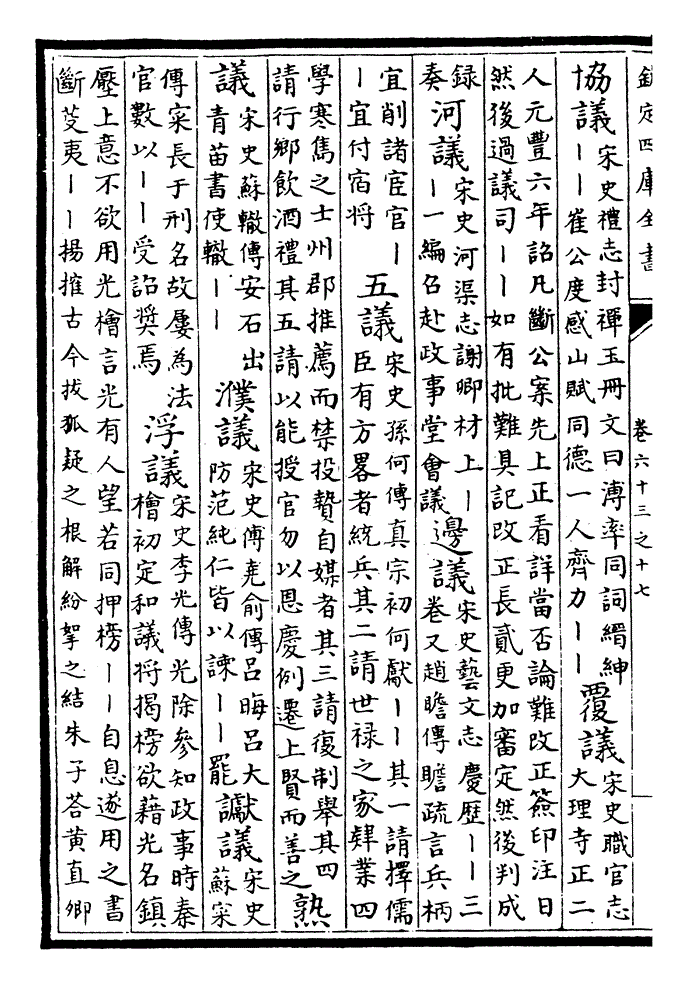 欽定四庫全書
卷六十三之十七
協議
宋史禮志封禪玉冊文曰溥率同詞縉紳
丨丨崔公度感山賦同德一人齊力丨丨
覆議
宋史職官志
大理寺正二
人元豐六年詔凡斷公案先上正看詳當否論難改正簽印注日
然後過議司丨丨如有批難具記改正長貳更加審定然後判成
録
奏
河議
宋史河渠志謝卿材上丨
丨一編召赴政事堂會議
邊議
宋史藝文志慶歷丨丨三
卷又趙瞻傳瞻疏言兵柄
宜削諸宦官丨
丨宜付宿将
五議
宋史孫何傳真宗初何獻丨丨其一請擇儒
臣有方畧者統兵其二請世禄之家肄業四
學寒雋之士州郡推薦而禁投贄自媒者其三請復制舉其四
請行鄉飲酒禮其五請以能授官勿以恩慶例遷上賢而善之
熟
議
宋史蘇轍傳安石出
青苗書使轍丨丨
濮議
宋史傅堯俞傳吕晦吕大
防范純仁皆以諫丨丨罷
讞議
宋史
蘇寀
傳寀長于刑名故屢為法
官數以丨丨受詔奨焉
浮議
宋史李光傳光除參知政事時秦
檜初定和議将揭榜欲藉光名鎮
壓上意不欲用光檜言光有人望若同押榜丨丨自息遂用之書
斷芟夷丨丨揚搉古今拔狐疑之根解紛挐之結朱子荅黄直卿